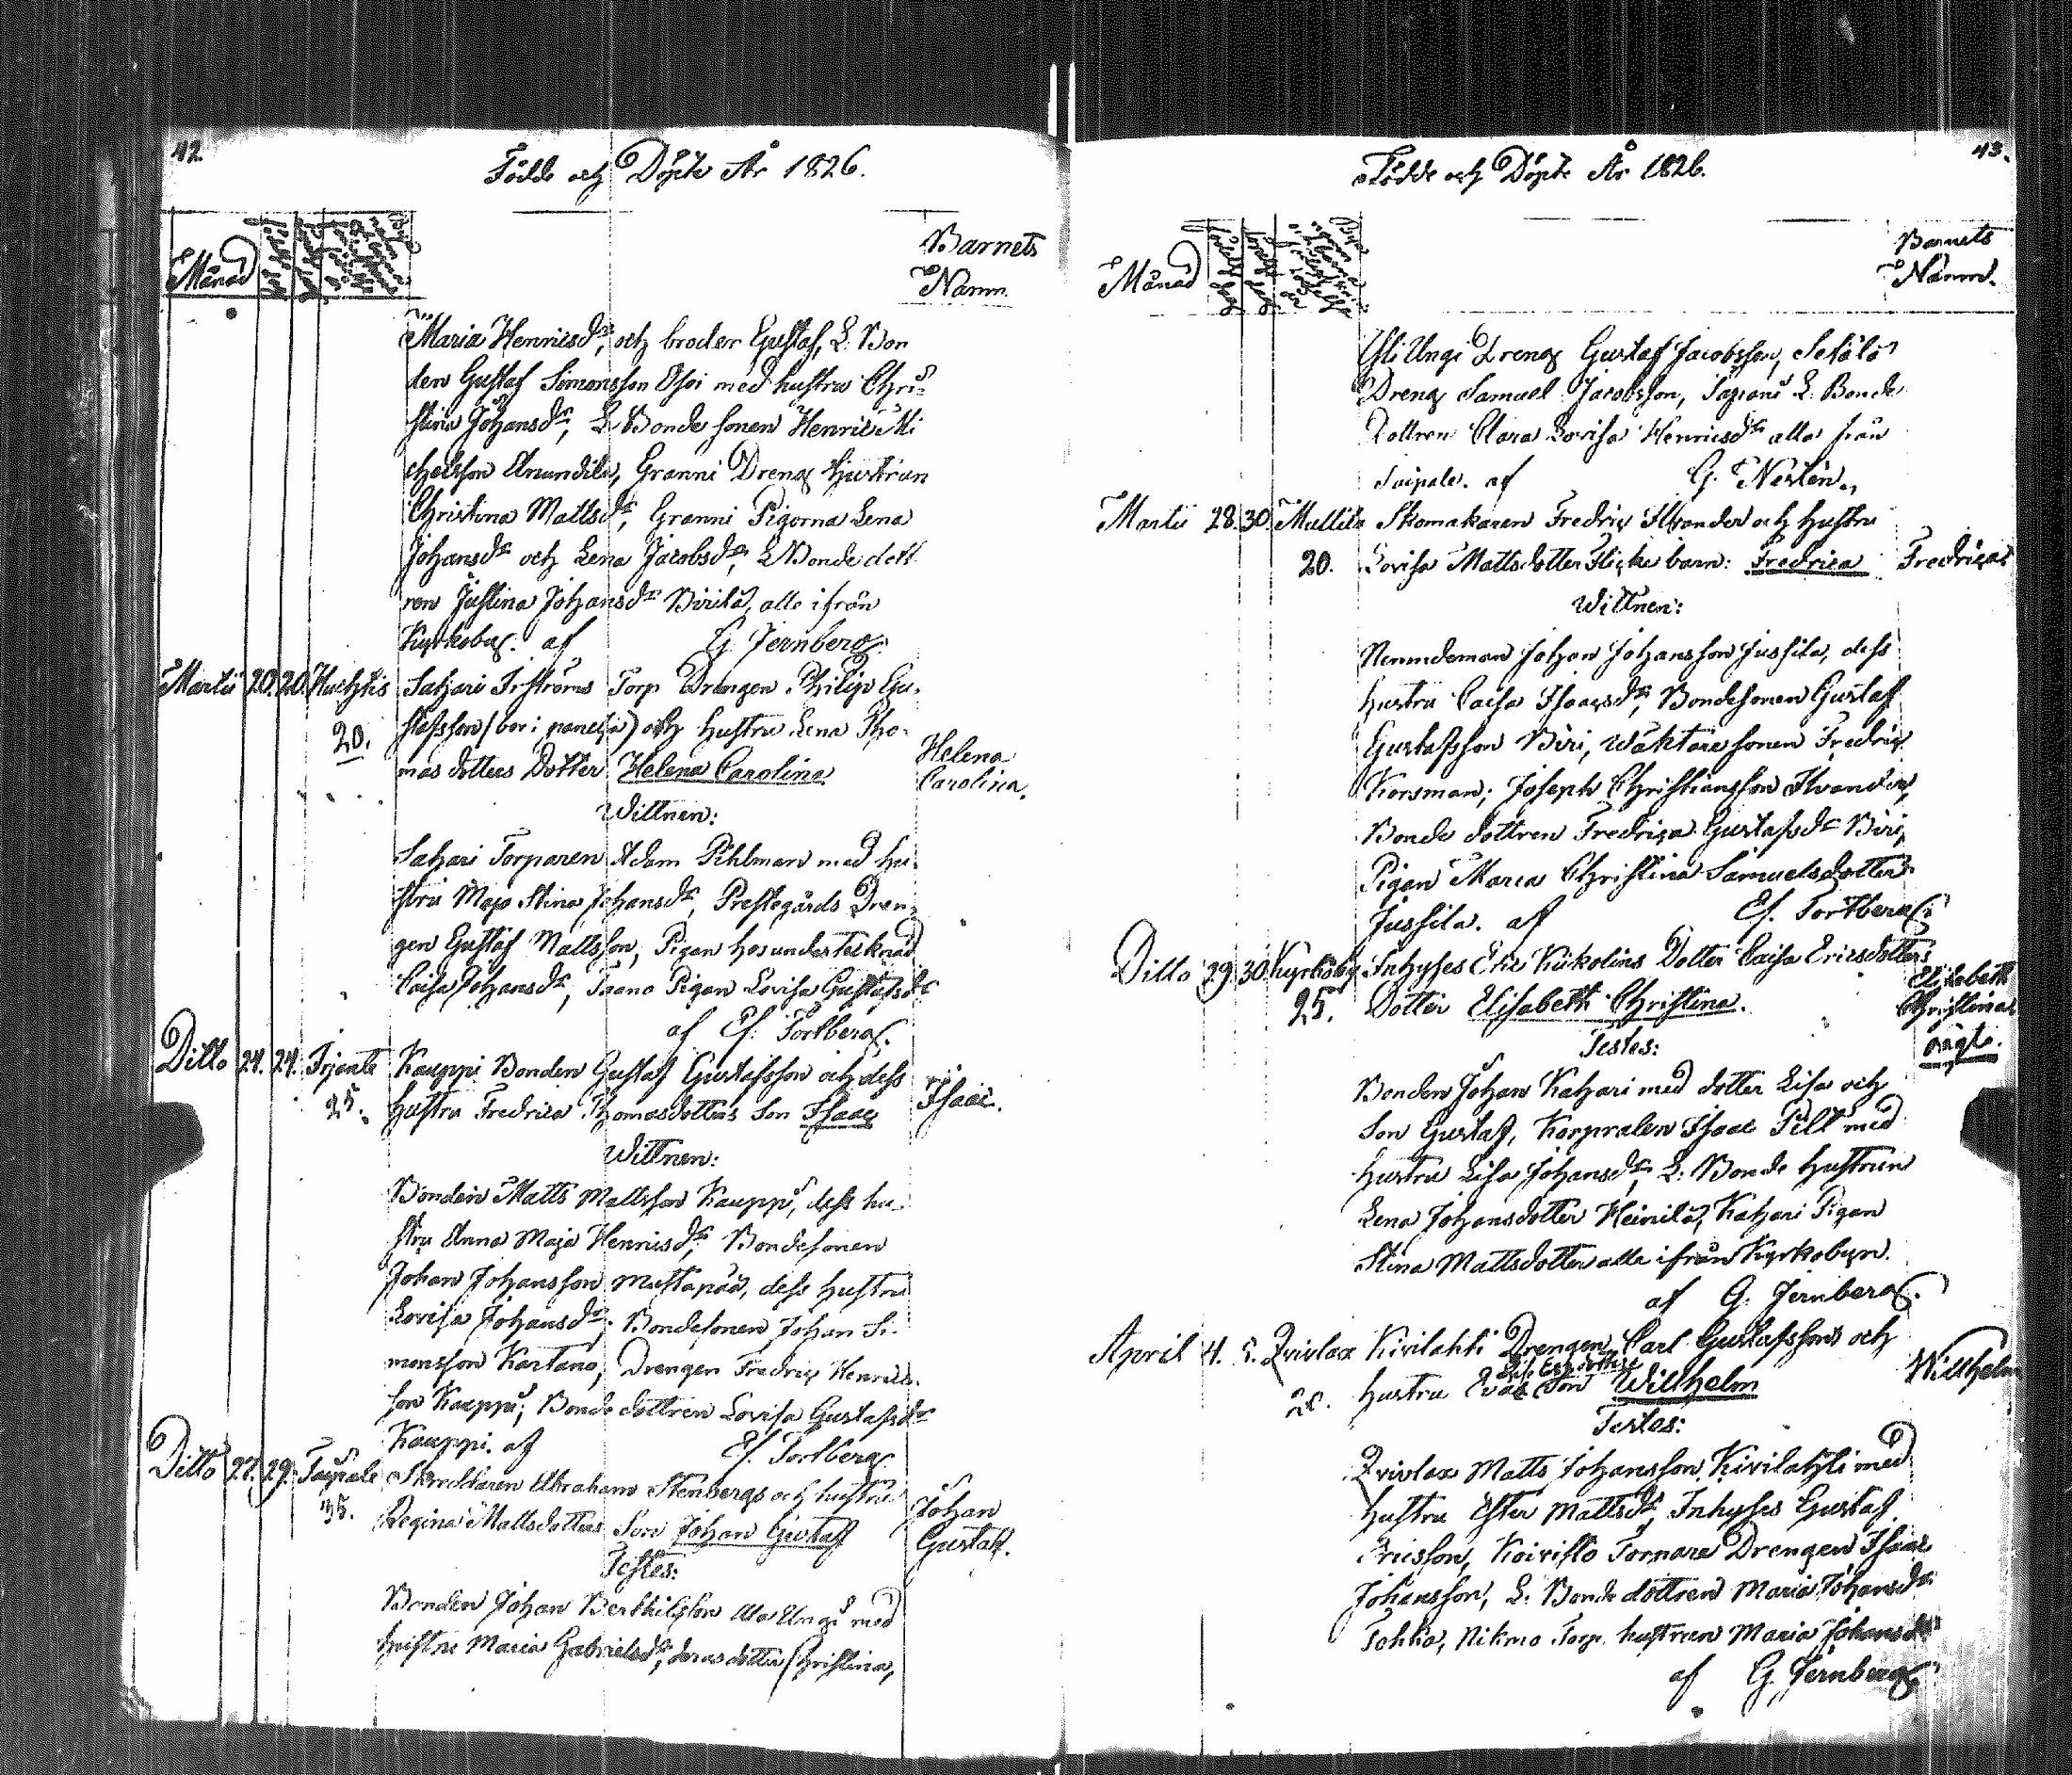 42.
Födde och Döpte År 1826.
Månad
Barnets
Namn.
Maria Henricsdr, och broder Gustaf, L. Bon
den Gustaf Simonsson Osoi med hustru Chri-
stina Johansdr, L. Bonde sonen Henric Mi
chelsson Anundila, Granni Dreng hustrun
Christina Mattsdr, Granni Pigorna Lena
Johansdr och Lena Jacobsdr, L Bonde dott
ren Justina Johansdr Birilä, alle ifrån
Kyrkoby. af G. Jernberg
Martii 20. 20. Huchtis Sahari Torp Drengen Philip Gu-
20. stafsson (bor i) och hustru Lena Tho-
mas dotters Dotter Helena Carolina Helena
Carolina.
Wittnen:
Sahari Torparen Adam Pihlman med hu-
stru Maja Stina Johansdr, Prestegårds Dren-
gen Gustaf Mattsson, Pigan hos undertecknad
Caisa Johansdr, Taano Pigan Lovisa Gustafsdr
af Ef. Tortberg.
Ditto 24. 24. Kauppi Bonden Gustaf Gustafsson och dess
25. hustru Fredrica Thomasdotters Son Isaac Isaac.
Wittnen:
Bonden Matts Mattsson Kauppi, dess hu-
stru Anna Maja Henricsdr, Bondesonen
Johan Johansson Mustapää, dess hustru
Lovisa Johansdr, Bondesonen Johan Si-
monsson Kartano, Drengen Fredric Henrics-
son Kauppi, Bonde dottren Lovisa Gustafsdr
Kauppi. af Ef. Tortberg
Ditto 27. 29. Taipale Skräddaren Abraham Stenbergs och hustru
35. Regina Mattsdotters Son Johan Gustaf Johan
Gustaf.
Testes:
Bonden Johan Berthilsson Ala Ungi med
hustru Maria Gabrielsdr, deras dotter Christina,
43.
Födde och Döpte År 1826.
Månad
Barnets
Namn.
Yli Ungi Dreng Gustaf Jacobsson, Setälä
Dreng Samuel Jacobsson, Tapani L. Bonde
Dottren Clara Lovisa Henricsdr alla från
Taipale. af G. Nestén.
Martii 28. 30. Mullila Skomakaren Fredric Strander och hustru
20. Lovisa Mattsdotters Flicke barn: Fredrica Fredrica
Wittnen:
Nemndeman Johan Johansson Jussila, dess
hustru Caisa Isaacsdr, Bondesonen Gustaf
Gustafsson Biri, Wäktare sonen Fredric
Korsman; Joseph Christiansson Strander,
Bonde dottren Fredrica Gustafsdr Biri,
Pigan Maria Christina Samuelsdotter
Jussila. af Ef. Tortberg.
Ditto 29. 30. Kyrkoby Inhyses Eric Kukolins Dotter Caisa Ericsdotters
25. Dotter Elisabeth Christina. Elisabeth
Christina
oägta.
Testes:
Bonden Johan Kahari med dotter Lisa och
Son Gustaf, Korpralen Isaac Pilt med
hustru Lisa Johansdr, L: Bonde hustrun
Lena Johansdotter Heinilä, Kahari Pigan
Stina Mattsdotter alla ifrån Kyrkobyn.
af G. Jernberg.
April 4. 5. Qvivlax Kivilahti Drengen Carl Gustafssons och
hustru Evas Son Wilhelm Willhelm
Testes:
Qvivlax Matts Johansson Kivilahti med
hustru Ester Mattsdr, Inhyses Gustaf
Ericsson, Koivisto Tornare Drengen Isaac
Johansson, L: Bonde dottren Maria Johansdr
Tohka, Torp hustrun Maria Johansdr
af G. Jernberg.